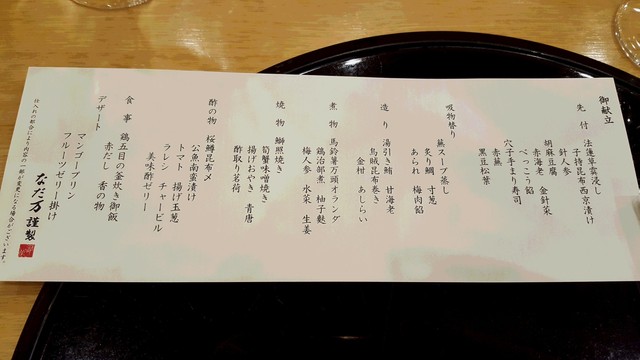 御献立
先付 法蓮草雲浸し
子持昆布西京漬け
針人参
胡麻豆腐
赤海老 金針菜
べっこう餡
穴子手まり寿司
赤蕪
黒豆松葉
吸物替り
蕪スープ蒸し
炙り鯛 寸葱
あられ 梅肉餡
造り 湯引き鮪 甘海老
烏賊昆布巻き
金柑 あしらい
煮物 馬鈴薯万頭オランダ
鶏治部煮 柚子麩
梅人参 水菜 生姜
焼物 鰤照焼き
筍蟹味噌焼き
揚げおやき 青唐
酢取り茗荷
酢の物 桜鱒昆布〆
公魚南蛮漬け
トマト 揚げ玉葱
ラレシ チャービル
美味酢ゼリー
食事 鶏五目の釜炊き御飯
赤だし 香の物
デザート
マンゴープリン
フルーツゼリー掛け
なだ万謹製
仕入れの都合により内容の一部が変更になる場合がございます。